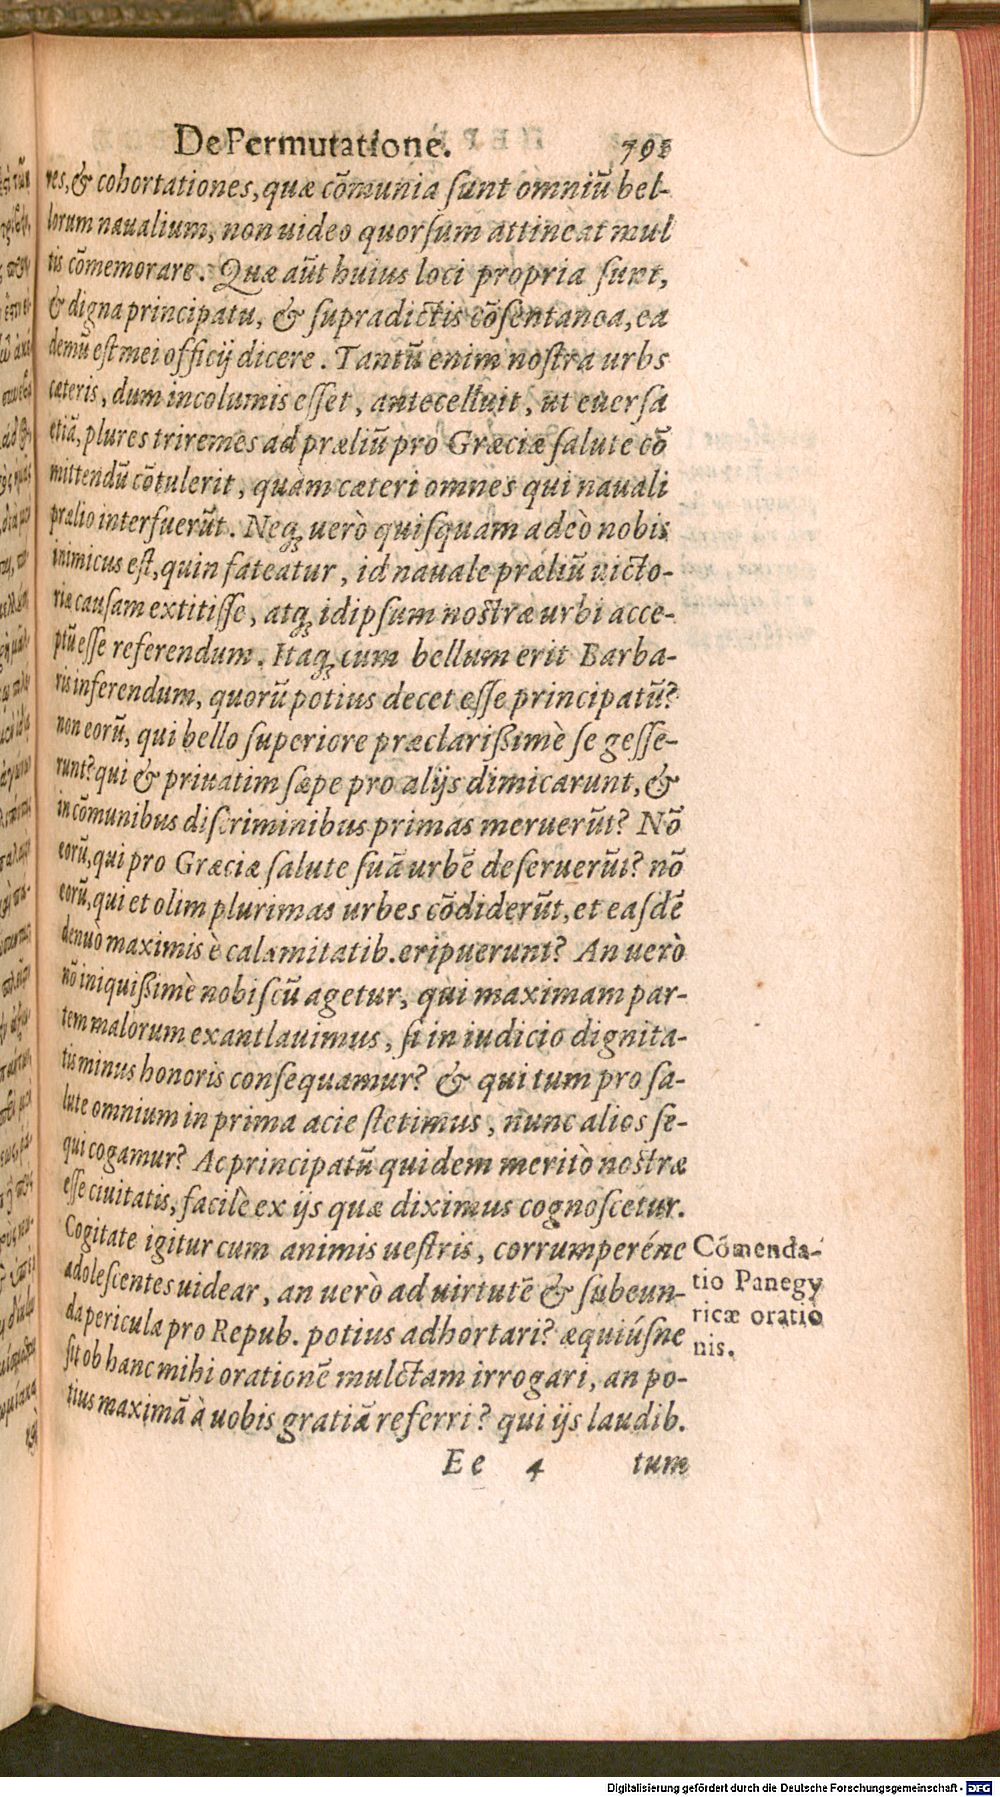 De Permutatione.
res, & cohortationes, quæ cõmunia sunt omniũ bel-
lorum naualium, non uideo quorsum attineat mul
tis cõmemorare. Quæ aũt huius loci propria sunt,
& digna principatu, & supradictis cõsentanea, ea
demũ est mei officij dicere. Tantũ enim nostra urbs
cæteris, dum incolumis esset, antecelluit, ut euersa
etiã, plures triremes ad præliũ pro Græciæ salute cõ
mittendũ cõtulerit, quàm cæteri omnes qui nauali
prælio interfuerũt. Neq; uerò quisquam adeò nobis
inimicus est, quin fateatur, id nauale præliũ uicto-
riæ causam extitisse, atq; id ipsum nostræ urbi acce-
ptũ esse referendum. Itaq; cum bellum erit Barba-
ris inferendum, quorũ potius decet esse principatũ?
non eorũ, qui bello superiore præclarißimè se gesse-
runt? qui & priuatim sæpe pro alijs dimicarunt, &
in cõmunibus discriminibus primas meruerũt? Nõ
eorũ, qui pro Græciæ salute suã urbẽ deseruerũt? nõ
eorũ, qui et olim plurimas urbes cõdiderũt, et easdẽ
denuò maximis è calamitatib. eripuerunt? An uerò
nõ iniquißimè nobiscũ agetur, qui maximam par-
tem malorum exantlauimus, si in iudicio dignita-
tis minus honoris consequamur? & qui tum pro sa-
lute omnium in prima acie stetimus, nunc alios se-
qui cogamur? Ac principatũ quidem meritò nostræ
esse ciuitatis, facilè ex ijs quæ diximus cognoscetur.
Cogitate igitur cum animis uestris, corrumperéne
adolescentes uidear, an uerò ad uirtutẽ & subeun-
da pericula pro Repub. potius adhortari? æquiúsne
sit ob hanc mihi orationẽ mulctam irrogari, an po-
tius maximã à uobis gratiã referri? qui ijs laudib.
Ee 4 tum
Cõmenda-
tio Panegy
ricæ oratio
nis.
Digitalisierung gefördert durch die Deutsche Forschungsgemeinschaft - DFG